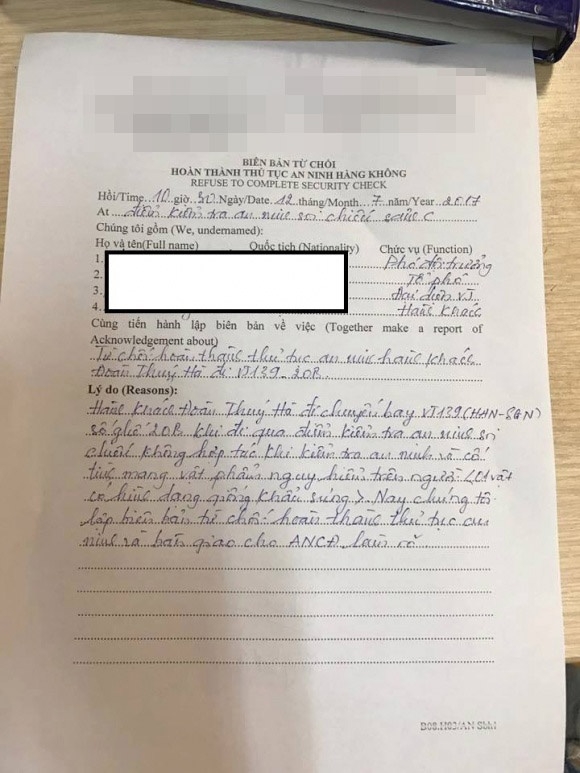 BIÊN BẢN TỪ CHỐI
HOÀN THÀNH THỦ TỤC AN NINH HÀNG KHÔNG
REFUSE TO COMPLETE SECURITY CHECK
Hồi/Time 10 giờ 30 Ngày/Date 12 tháng/Month 7 năm/Year 2017
At điểm kiểm tra an ninh soi chiếu sảnh C
Chúng tôi gồm (We, undernamed):
Họ và tên(Full name) Quốc tịch (Nationality) Chức vụ (Function)
1. Phó đội trưởng
2. Tổ phó
3. Đại diện VJ
4. Hành khách
Cùng tiến hành lập biên bản về việc (Together make a report of
Acknowledgement about)
Từ chối hoàn thành thủ tục an ninh hành khách
Đoàn Thuý Hà đi VJ139 20B.
Lý do (Reasons):
Hành khách Đoàn Thuý Hà đi chuyến bay VJ139 (HAN-SGN)
số ghế 20B khi đi qua điểm kiểm tra an ninh soi
chiếu không hợp tác khi kiểm tra an ninh và cố
tình mang vật phẩm nguy hiểm trên người (01 vật
có hình dạng giống khẩu súng). Nay chúng tôi
lập biên bản từ chối hoàn thành thủ tục an
ninh và bàn giao cho ANCĐ làm rõ.